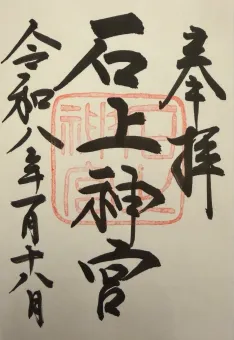 奉拝
石上神宮
令和八年一月十八日
石上
神宮